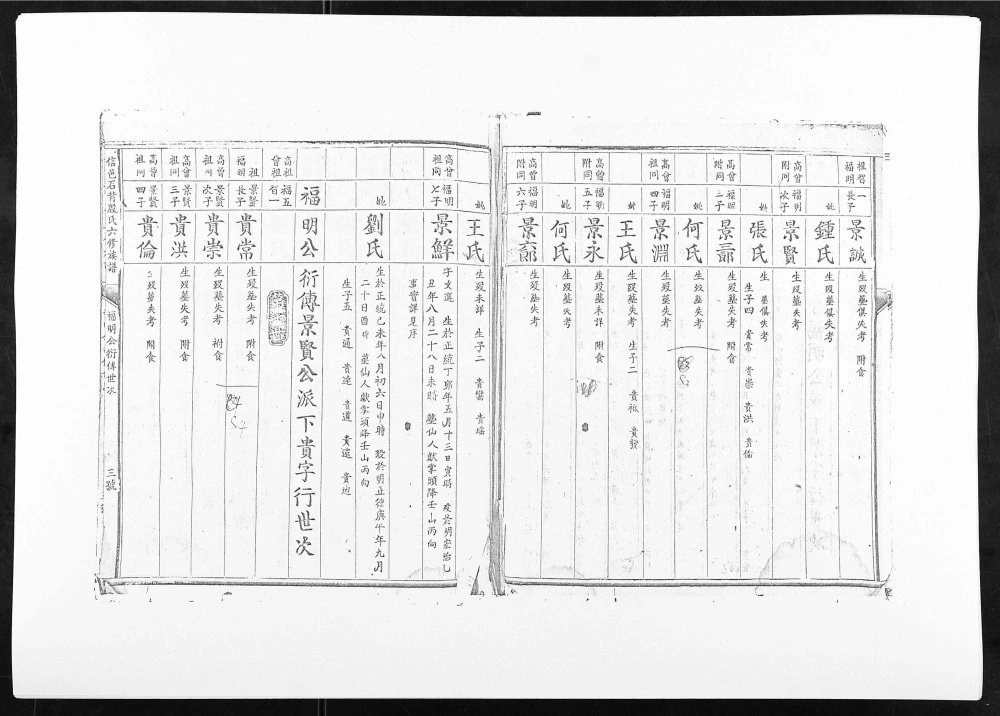 祖智一
福明長子
景誠
生歿墓俱失考 附食
妣
鍾氏
生歿墓俱失考
高曾
附同
福明
次子
景賢
生歿墓失考
妣
張氏
生 墓俱失考
生子四 貴常 貴崇 貴洪 貴倫
高曾
附同
福明
三子
景
生歿墓失考 附食
妣
何氏
生歿墓失考
高曾
祖同
福明
四子
景淵
生歿墓失考
妣
王氏
生歿墓失考 生子二 貴
高曾
附同
福明
五子
景永
生歿墓未詳 附食
妣
何氏
生歿墓失考
高曾
附同
福明
六子
景
生歿墓失考
妣
王氏
生歿未詳 生子二 貴鸞 貴瑶
高曾
祖同
福明
七子
景鮮
字文選 生於正統丁卯年五月十三日寅時 歿於明宏治乙
丑年八月二十八日未時 墓仙人獻掌頭降壬山丙向
事實詳見序
妣
劉氏
生於正統己未年八月初六日申時 歿於明正德庚午年九月
二十日酉時 墓仙人獻掌項降壬山丙向
生子五 貴通 貴達 貴道 貴遠
福明公衍傳景賢公派下貴字行世次
高祖福五
曾祖哲一
祖福明
景賢
長子
貴常
生歿墓失考 附食
高曾
祖同
景賢
次子
貴崇
生歿墓失考 附食
高曾
祖同
景賢
三子
貴洪
生歿墓失考 附食
高曾
祖同
景賢
四子
貴倫
生歿墓失考 附食
信邑石背殷氏六修族譜
福明公衍傳世次
三號